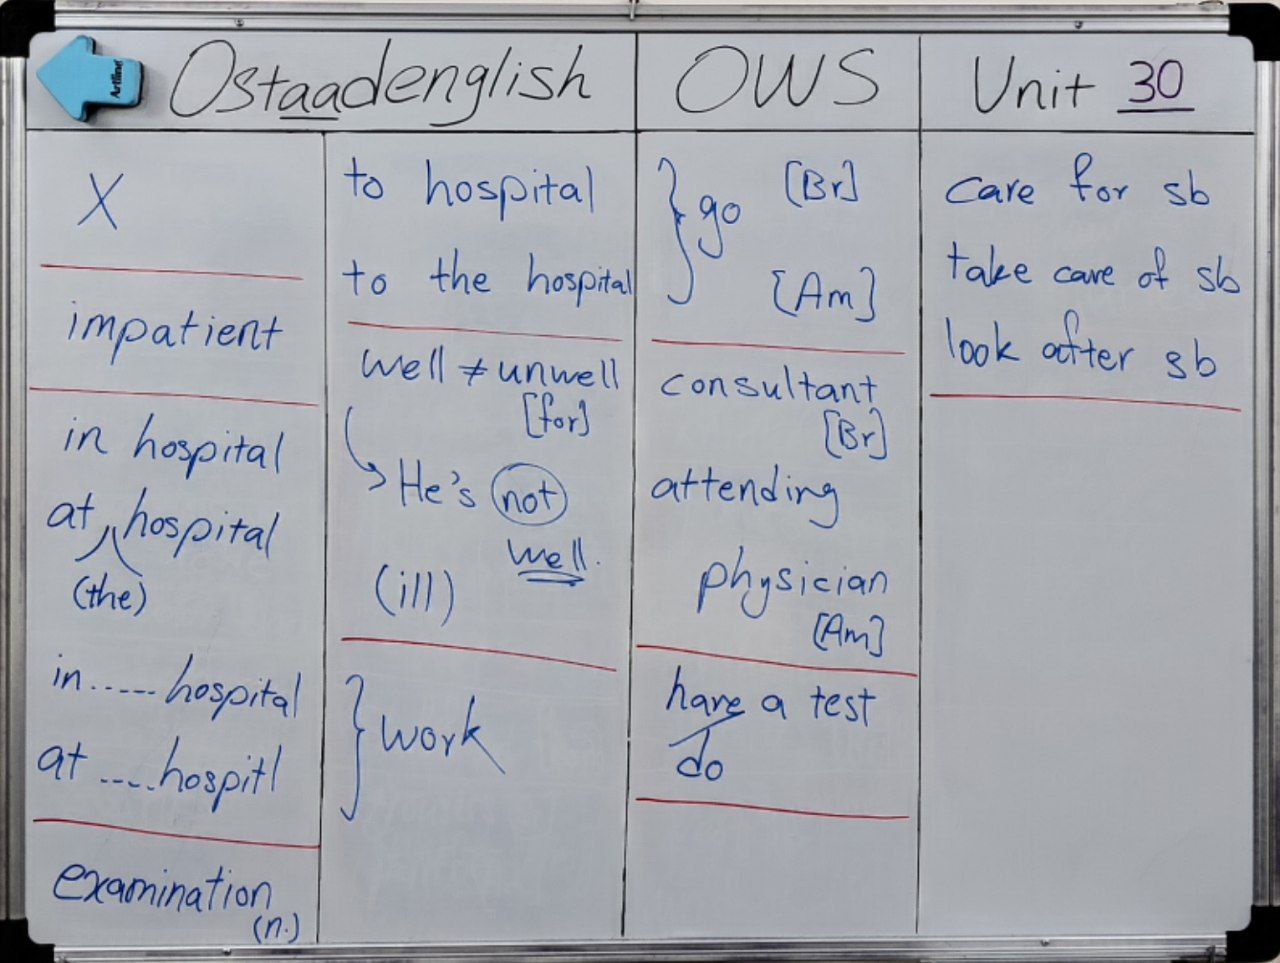 Artline
Ostaadenglish
OWS
Unit 30
X
impatient
in hospital
at hospital
(the)
in ...... hospital
at ..... hospitl
examination
(n.)
to hospital
to the hospital
well ≠ unwell
[for]
He's not
well.
(ill)
} work
} go [Br]
[Am]
consultant
[Br]
attending
physician
[Am]
have a test
do
care for sb
take care of sb
look after sb